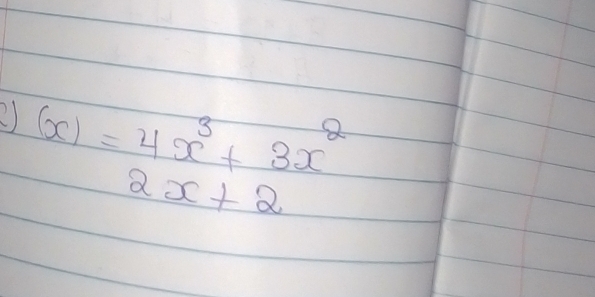 c) (x) = 4x³ + 3x²
2x + 2